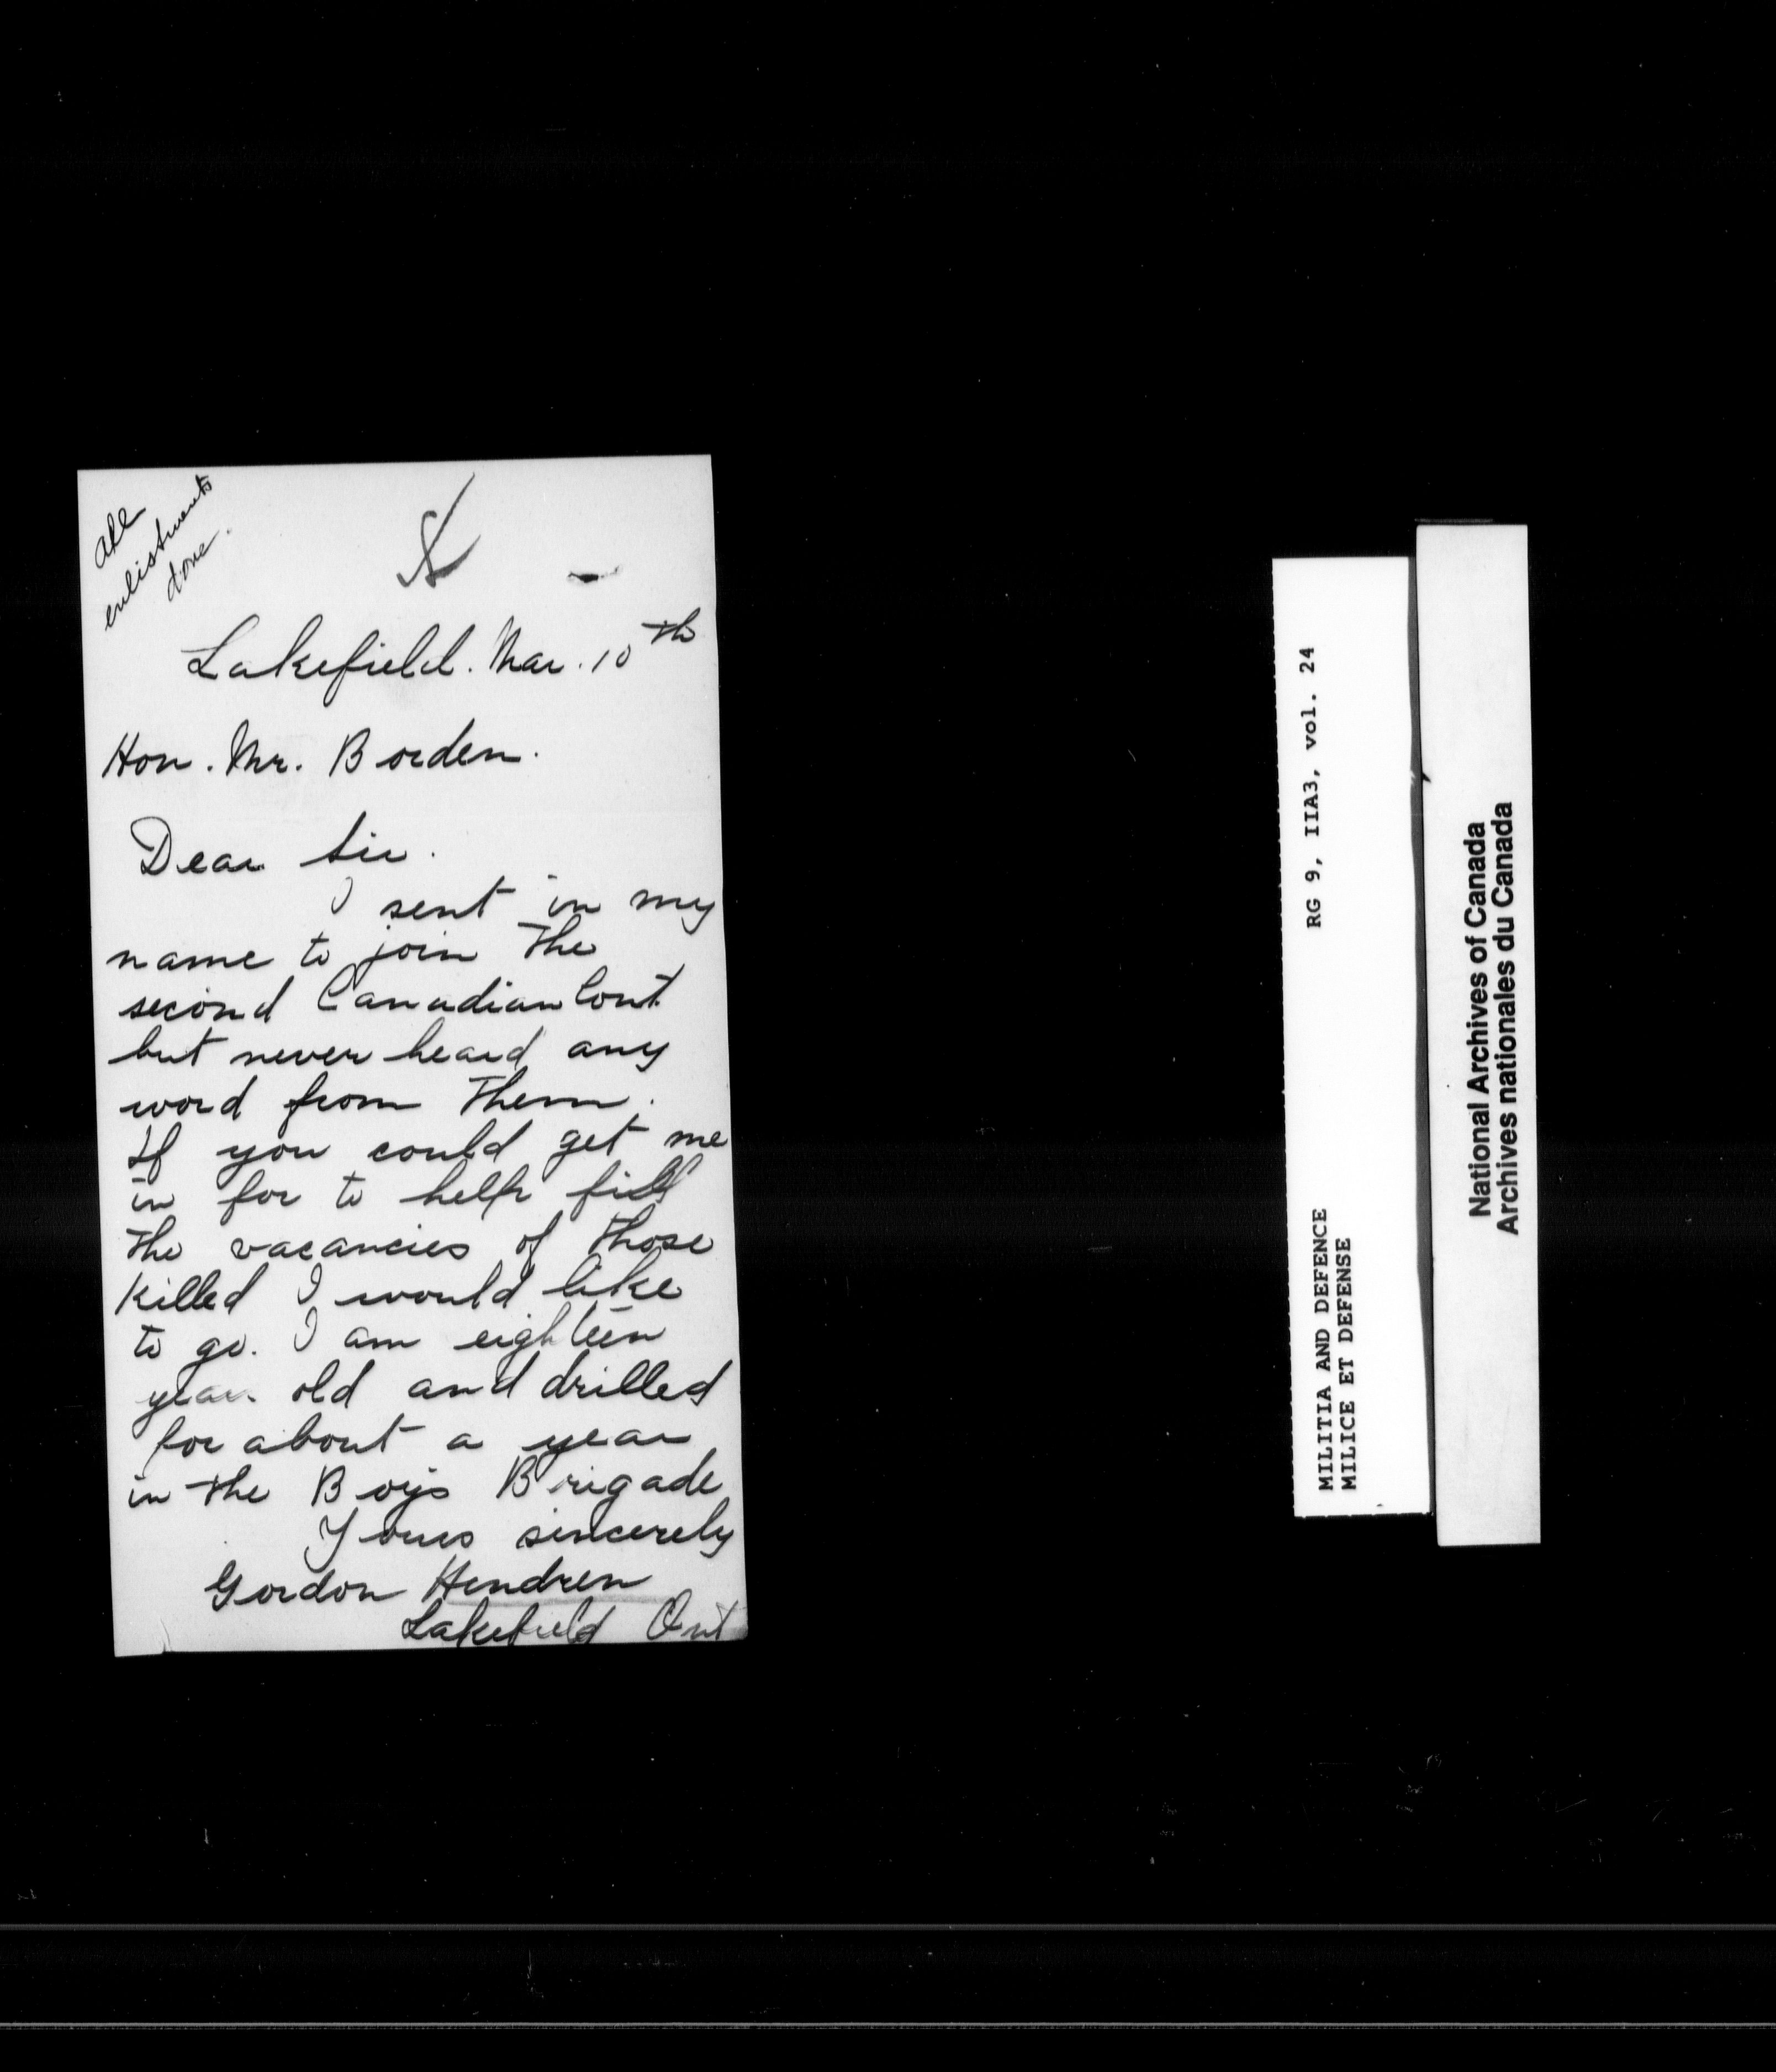 all
enlistments
done.
Lakefield. Mar. 10th
Hon. Mr. Borden.
Dear Sir.
I sent in my
name to join the
second Canadian Cont
but never heard any
word from them.
If you could get me
in for to help fill
the vacancies of those
killed I would like
to go. I am eighteen
years old and drilled
for about a year
in the Boys Brigade
Yours sincerely
Gordon Hendren
Lakefield Ont
RG 9, IIA3, vol. 24
MILITIA AND DEFENCE
MILICE ET DEFENSE
National Archives of Canada
Archives nationales du Canada